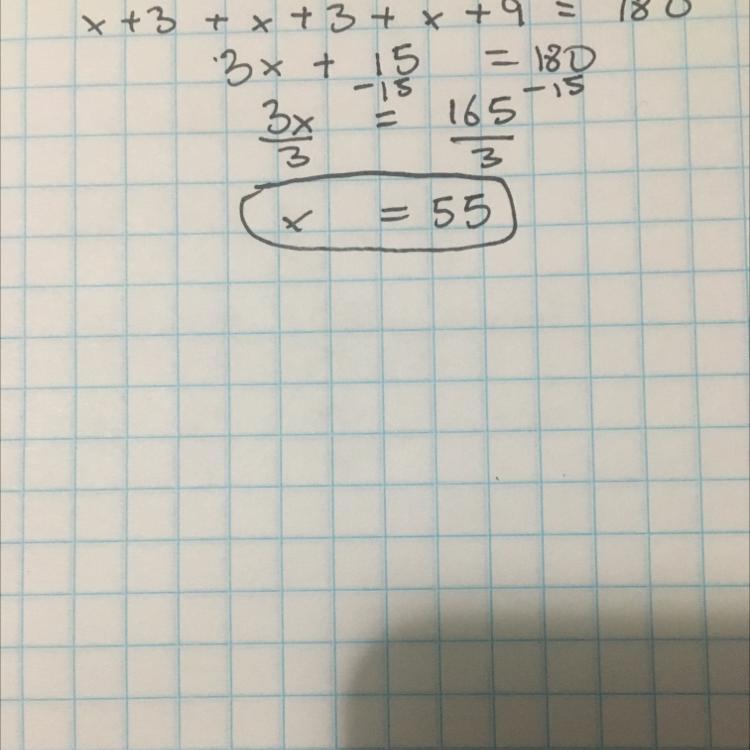 x + 3 + x + 3 + x + 9 = 180
3x + 15 = 180
-15 -15
3x = 165
3 3
x = 55